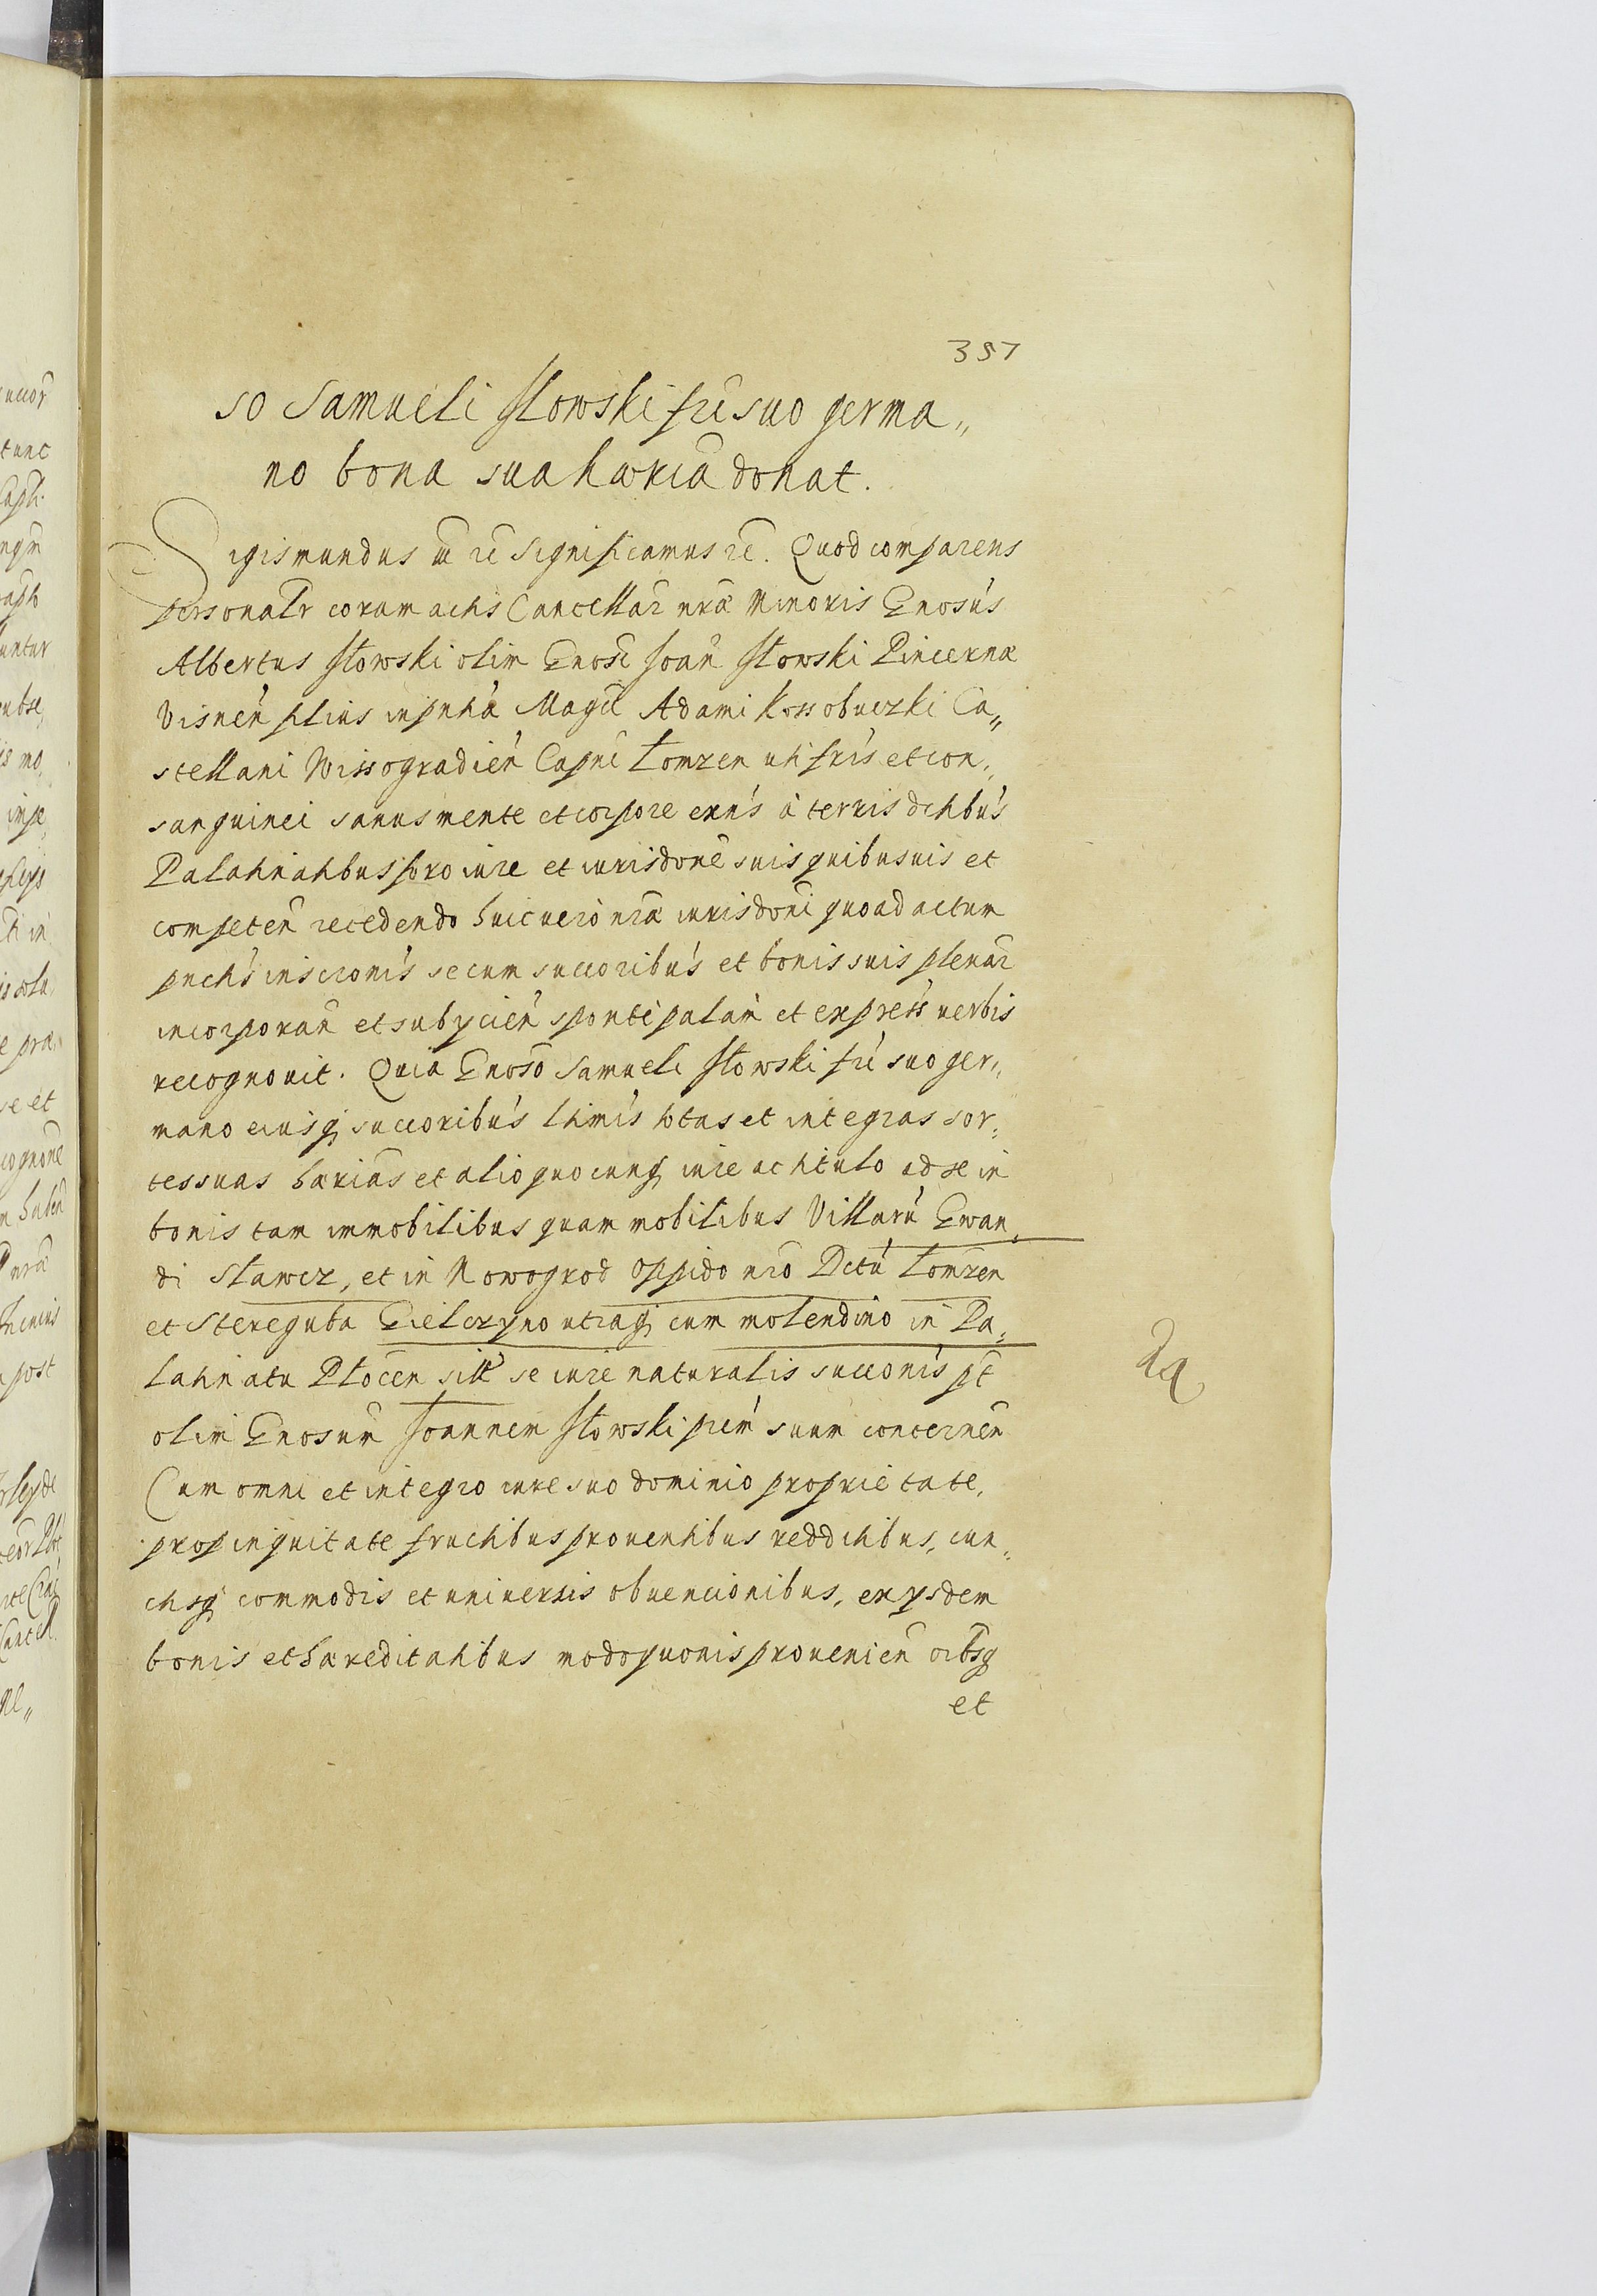 357
so Samueli Iłowski fri suo germa„
no bona sua hæricā donat.
Sigismundus III etc Significamus etc. Quod comparens
personalr coram actis Cancellar nræ Minoris Gnosus
Albertus Iłowski olim Gnosi Joan Iłowski Pincernæ
Visnen filius in pntia Magci Adami Kossobuczki Ca„
stellani Wissogradien Capnei Lomzen uti fris et con„
sanguinei sanus mente et corpore exns à terris ditibus
Palatinatibus foro iure et iurisdone suis quibusuis et
competen recedendo huic uero nræ iurisdoni quoad actum
pntis inscronis se cum succoribus et bonis suis plenar
incorporan et subycien sponte palam et express uerbis
recognouit. Quia Gnoso Samueli Iłowski fri suo ger„
mano eiusq succoribus ltimis totas et integras sor„
tes suas hærias et alio quocunq iure ac titulo ad se in
bonis tam immobilibus quam mobilibus Villaru Gwan„
di Stawcz, et in Nowogrod oppido nro Dctu Lomzen
et Stereguba Gielczyno utraq cum molendino in Pa„
latinatu Plocen sitt se iure naturalis succonis pt
olim Gnosum Joannem Iłowski prem suum concernen
Cum omni et integro iure suo dominio proprietate,
propinquitate fructibus prouentibus redditibus, cun„
ctisq commodis et uniuersis obuencionibus, ex ysdem
bonis et hæreditatibus modoquouis prouenien oibsq
et